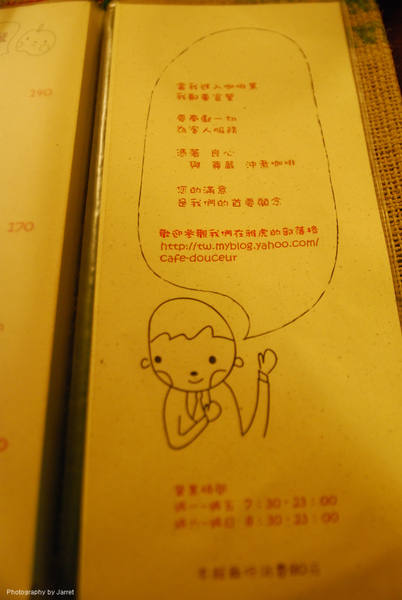 當我進入咖啡業
我鄭重宣誓
要奉獻一切
為客人服務
憑著 良心
與 尊嚴 沖煮咖啡
您的滿意
是我們的首要願念
歡迎參觀我們在雅虎的部落格
http://tw.myblog.yahoo.com/
cafe-douceur
190
170
營業時間
週一~週五 7:30-23:00
週六~週日 8:30-23:00
Photography by Jarret